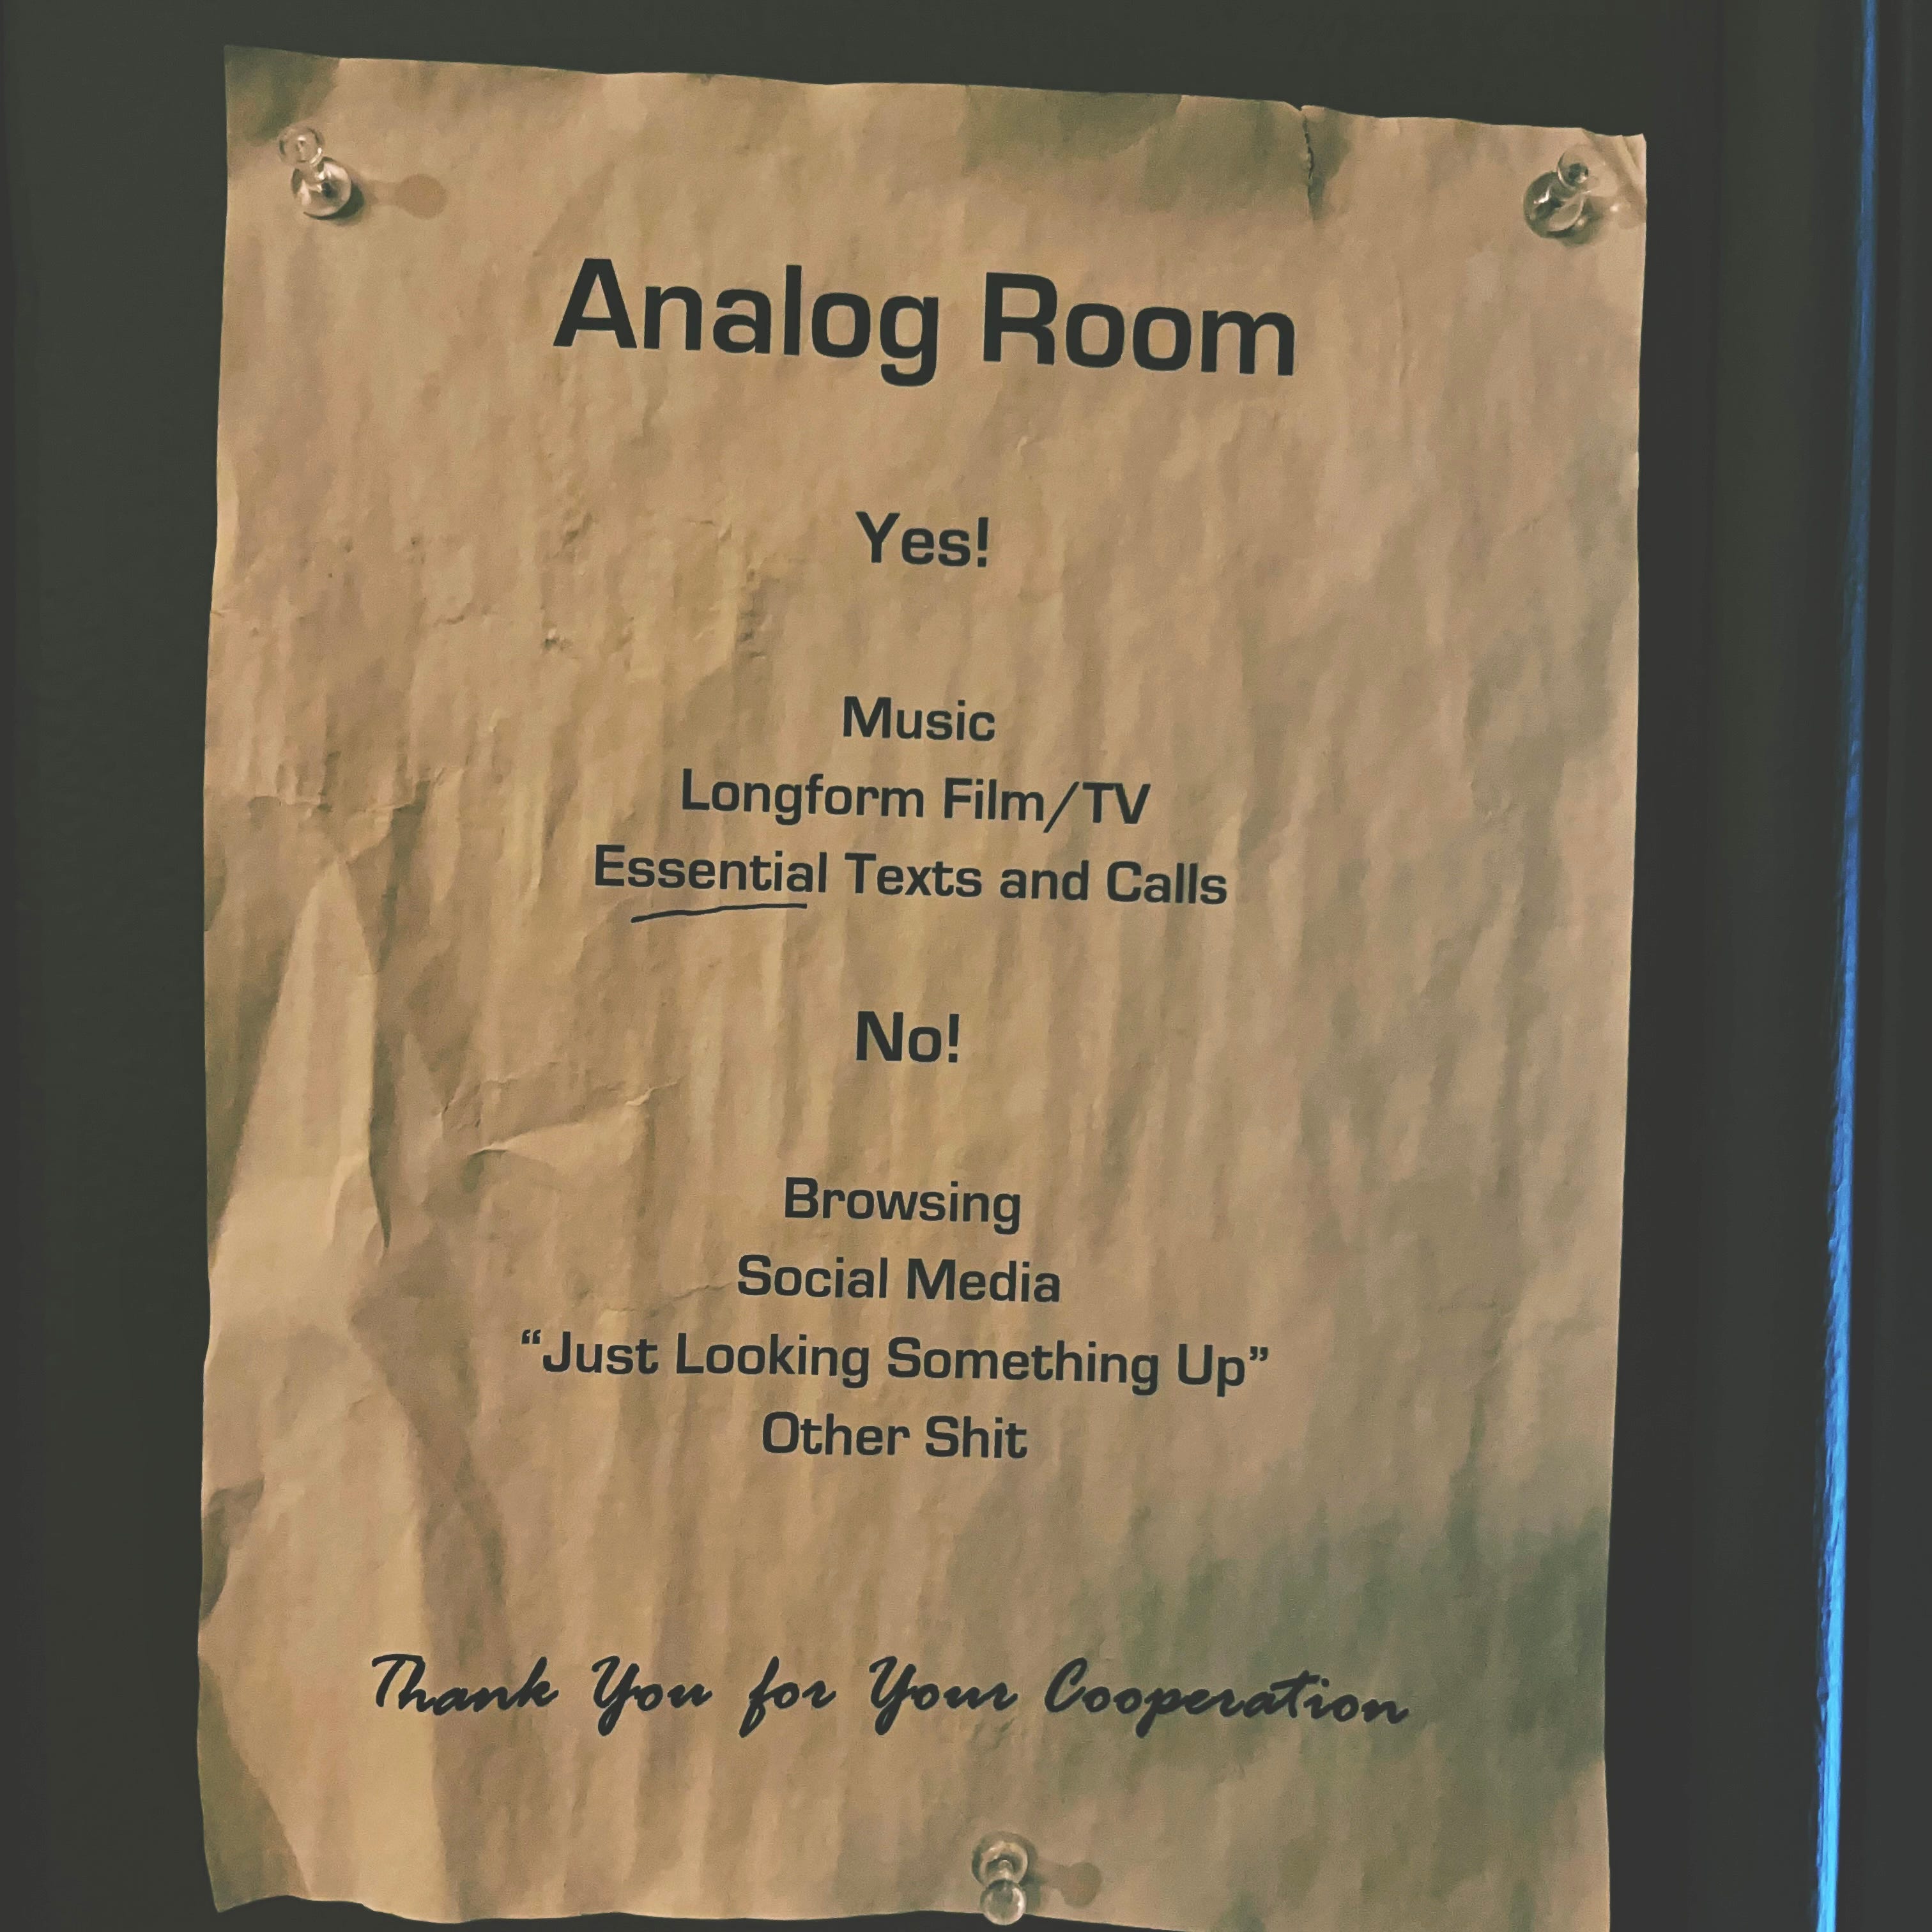 Analog Room
Yes!
Music
Longform Film/TV
Essential Texts and Calls
No!
Browsing
Social Media
“Just Looking Something Up”
Other Shit
Thank You for Your Cooperation